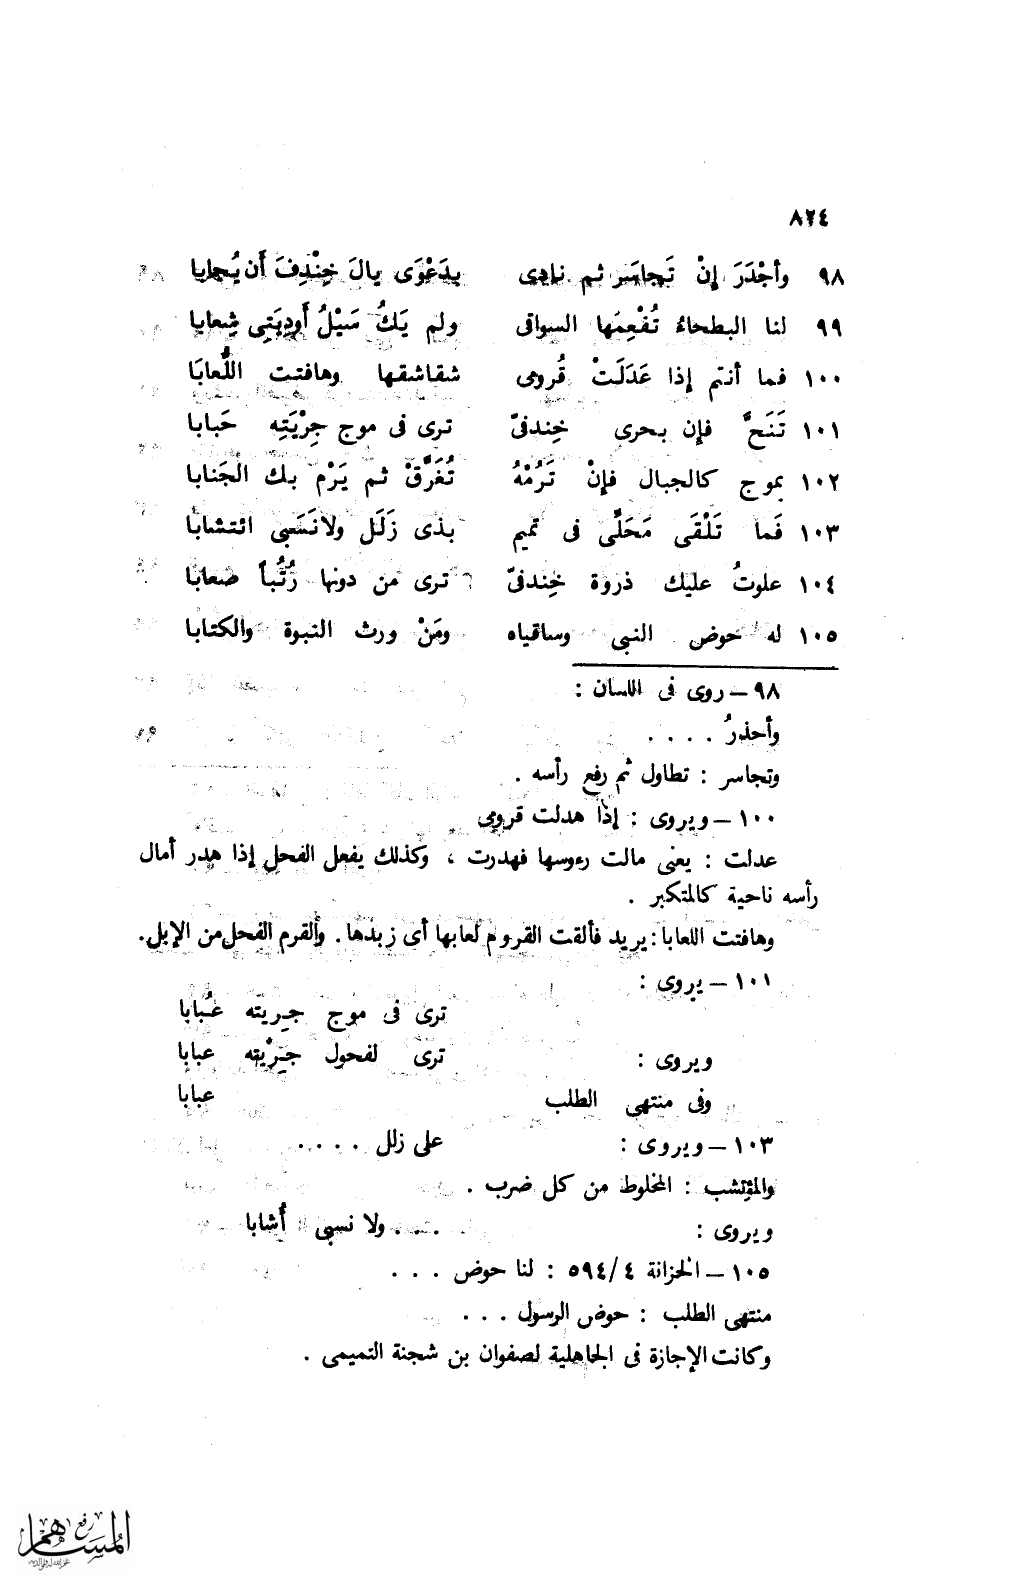 ٨٢٤
٩٨ وأجْدَرَ إنْ تَجاسَر ثم نادى بدَعْوَى يالَ خِنْدِفَ أَن يُجابا
٩٩ لنا البطحاءُ تُفْعِمُها السواقى ولم يَكُ سَيْلُ أَودِيَتِى شِعابا
١٠٠ فما أنتم إذا عَدَلَتْ قُرومى شقاشقها وهافتت اللُّعابَا
١٠١ تَنَحَّ فإِن بحرى خِندفىّ ترى فى موج جِرْيَتِه حَبابا
١٠٢ بموج كالجبال فإنْ تَرُمْهُ تُغَرَّقْ ثم يَرْمِ بك الجَنابا
١٠٣ فَما تَلْقَى مَحَلِّى فى تميم بذى زَلَل ولا نَسَبِى ائتشابا
١٠٤ علوتُ عليك ذروة خِندفىّ ترى من دونها رُتُباً صعابا
١٠٥ له حوض النبى وساقياه ومَنْ ورث النبوة والكتابا
٩٨ – روى فى اللسان :
وأحذرُ . . . .
وتجاسر : تطاول ثم رفع رأسه .
١٠٠ – ويروى : إذا هدلت قرومى
عدلت : يعنى مالت رءوسها فهدرت ، وكذلك يفعل الفحل إذا هدر أمال
رأسه ناحية كالمتكبر .
وهافتت اللعابا : يريد فألقت القروم لعابها أى زبدها . والقرم الفحل من الإبل .
١٠١ – يروى :
ترى فى موج جـِريته عُبابا
ويروى : ترى لفحول جـِرْيته عبابا
وفى منتهى الطلب عبابا
١٠٣ – ويروى : على زلل . . . .
والمؤتشب : المخلوط من كل ضرب .
ويروى : . . . ولا نسبى أُشابا
١٠٥ – الخزانة ٤/٥٩٤ : لنا حوض . . .
منتهى الطلب : حوض الرسول . . .
وكانت الإجازة فى الجاهلية لصفوان بن شجنة التميمى .